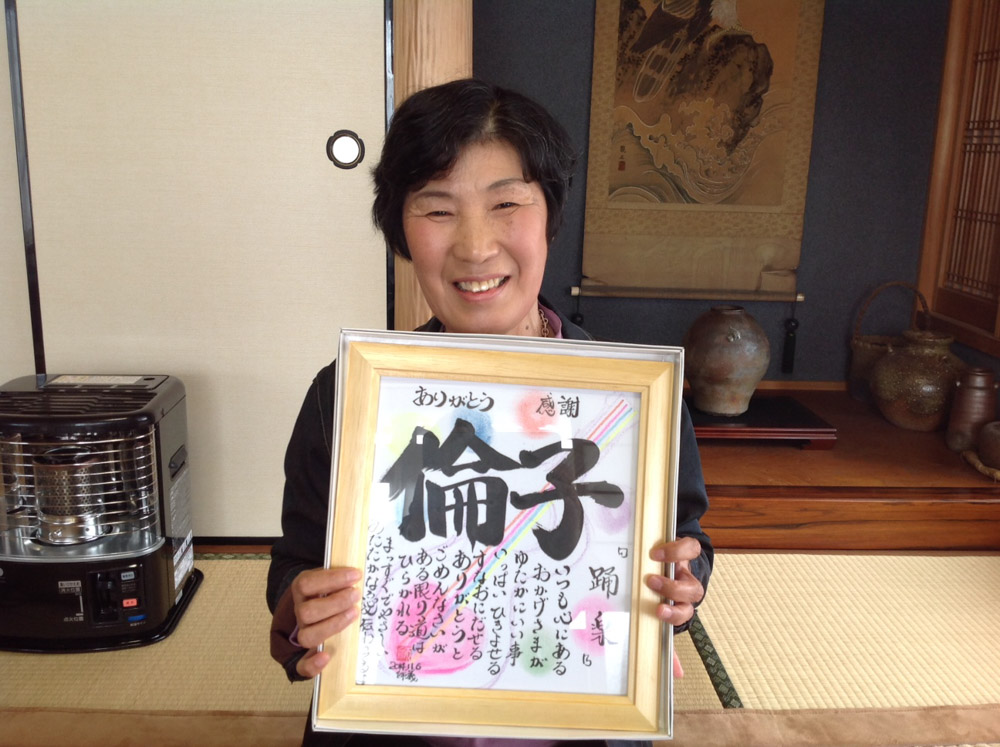 ありがとう 感謝
倫子
踊 楽
いつも心にある
おかげさまが
ゆたかにいい事
いっぱい ひきよせる
すなおにだせる
ありがとうと
ごめんなさいが
ある限り道は
ひらかれる
まっすぐでやさしい